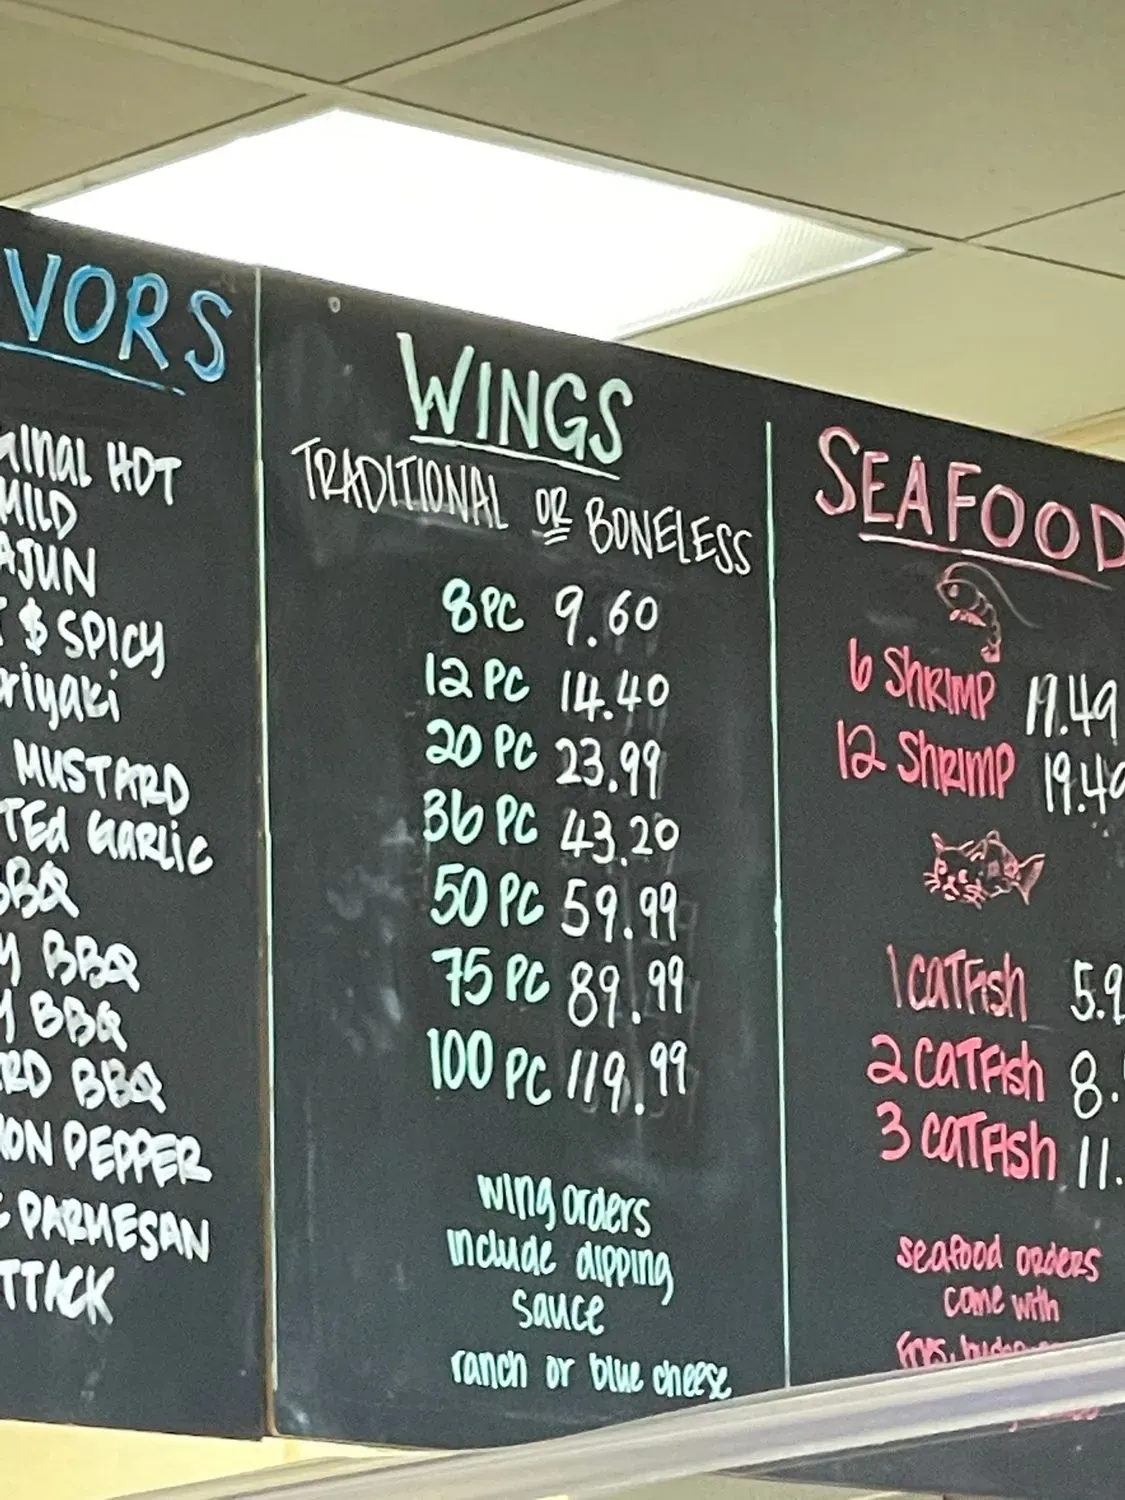 VORS
GINAL HOT
MILD
AJUN
$ SPICY
riyaki
MUSTARD
TED GARLIC
BBQ
Y BBQ
Y BBQ
RD BBQ
ON PEPPER
C PARMESAN
TTACK
WINGS
TRADITIONAL OR BONELESS
8 PC 9.60
12 PC 14.40
20 PC 23.99
36 PC 43.20
50 PC 59.99
75 PC 89.99
100 PC 119.99
wing orders
include dipping
sauce
ranch or blue cheese
SEAFOOD
6 SHRIMP
12 SHRIMP 19.49
1 CATFISH 5.9
2 CATFISH 8.
3 CATFISH 11.
seafood orders
come with